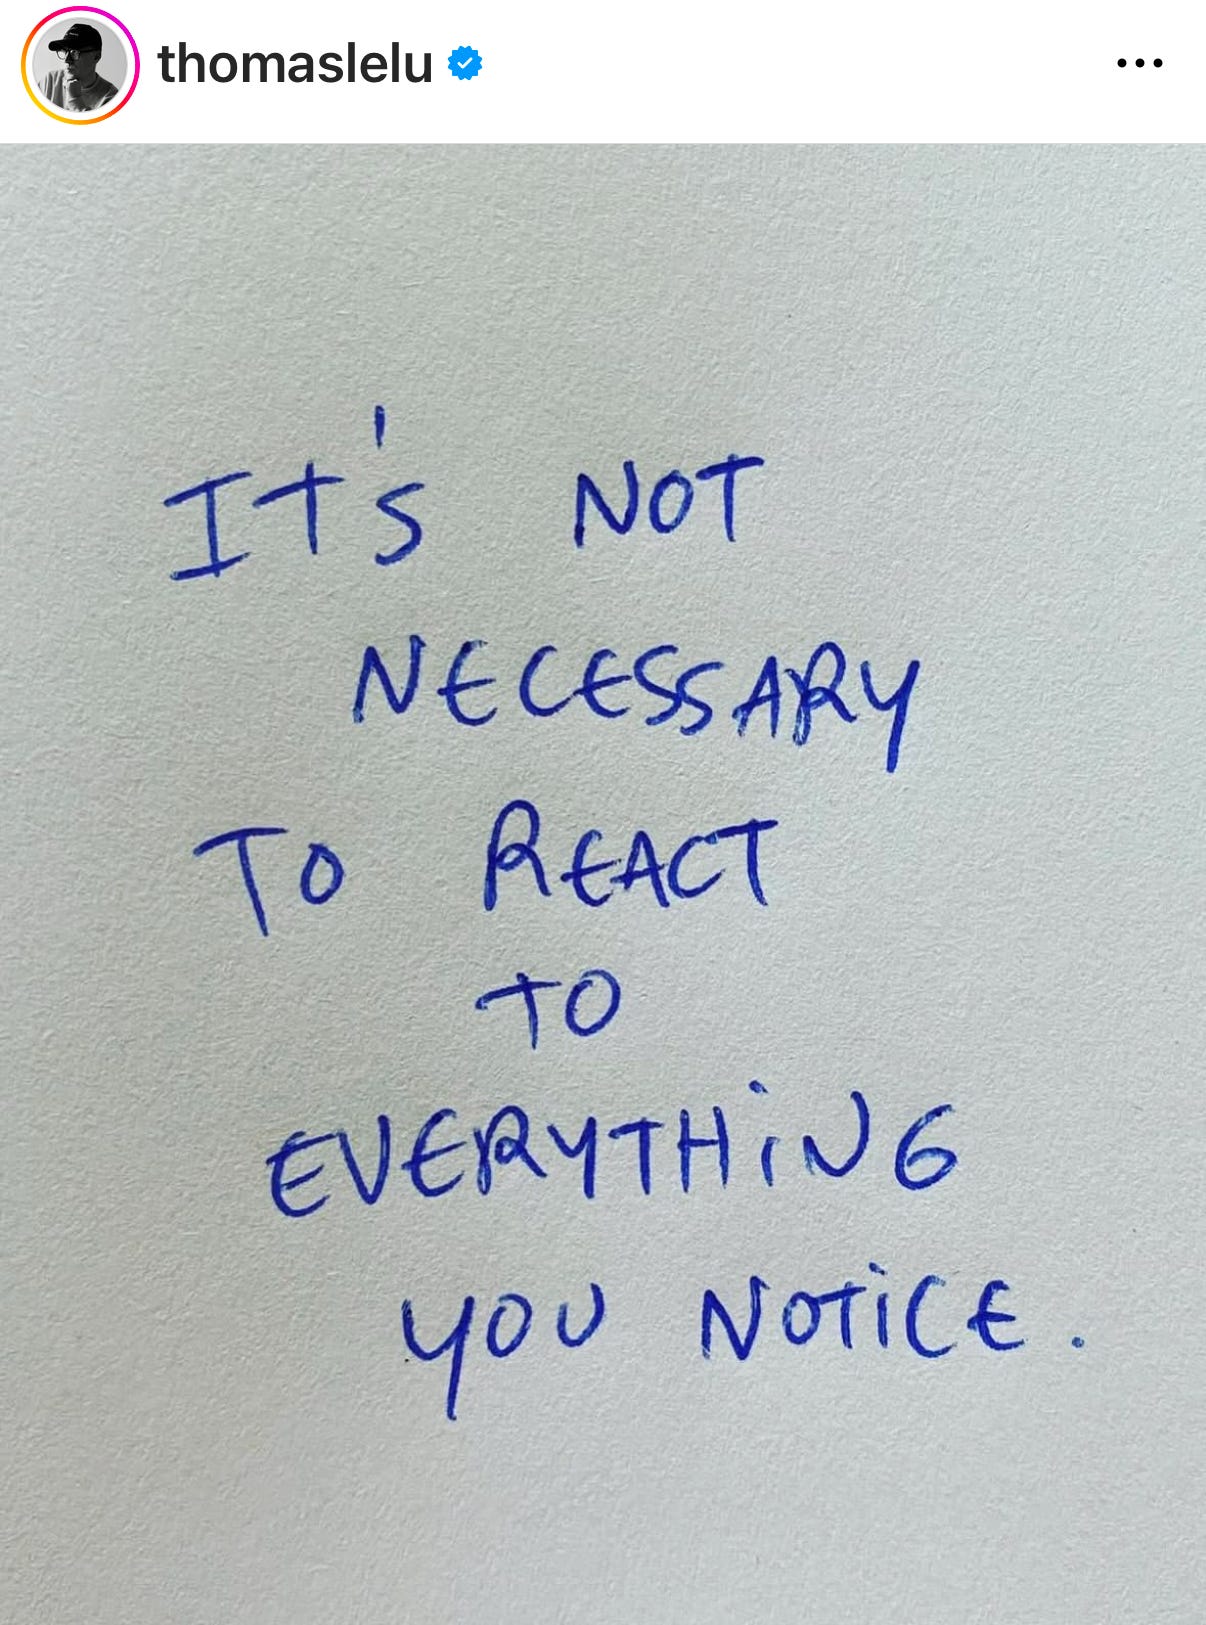 thomaslelu
It's NOT
NECESSARY
TO REACT
TO
EVERYTHiNG
YOU NOTiCE.